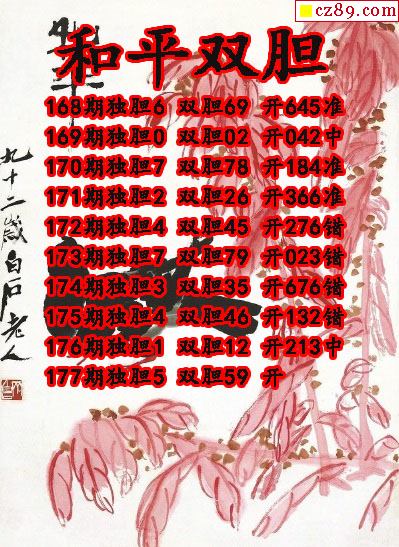 cz89.com
和平双胆
168期独胆6 双胆69 开645准
169期独胆0 双胆02 开042中
170期独胆7 双胆78 开184准
171期独胆2 双胆26 开366准
172期独胆4 双胆45 开276错
173期独胆7 双胆79 开023错
174期独胆3 双胆35 开676错
175期独胆4 双胆46 开132错
176期独胆1 双胆12 开213中
177期独胆5 双胆59 开
九十二岁白石老人